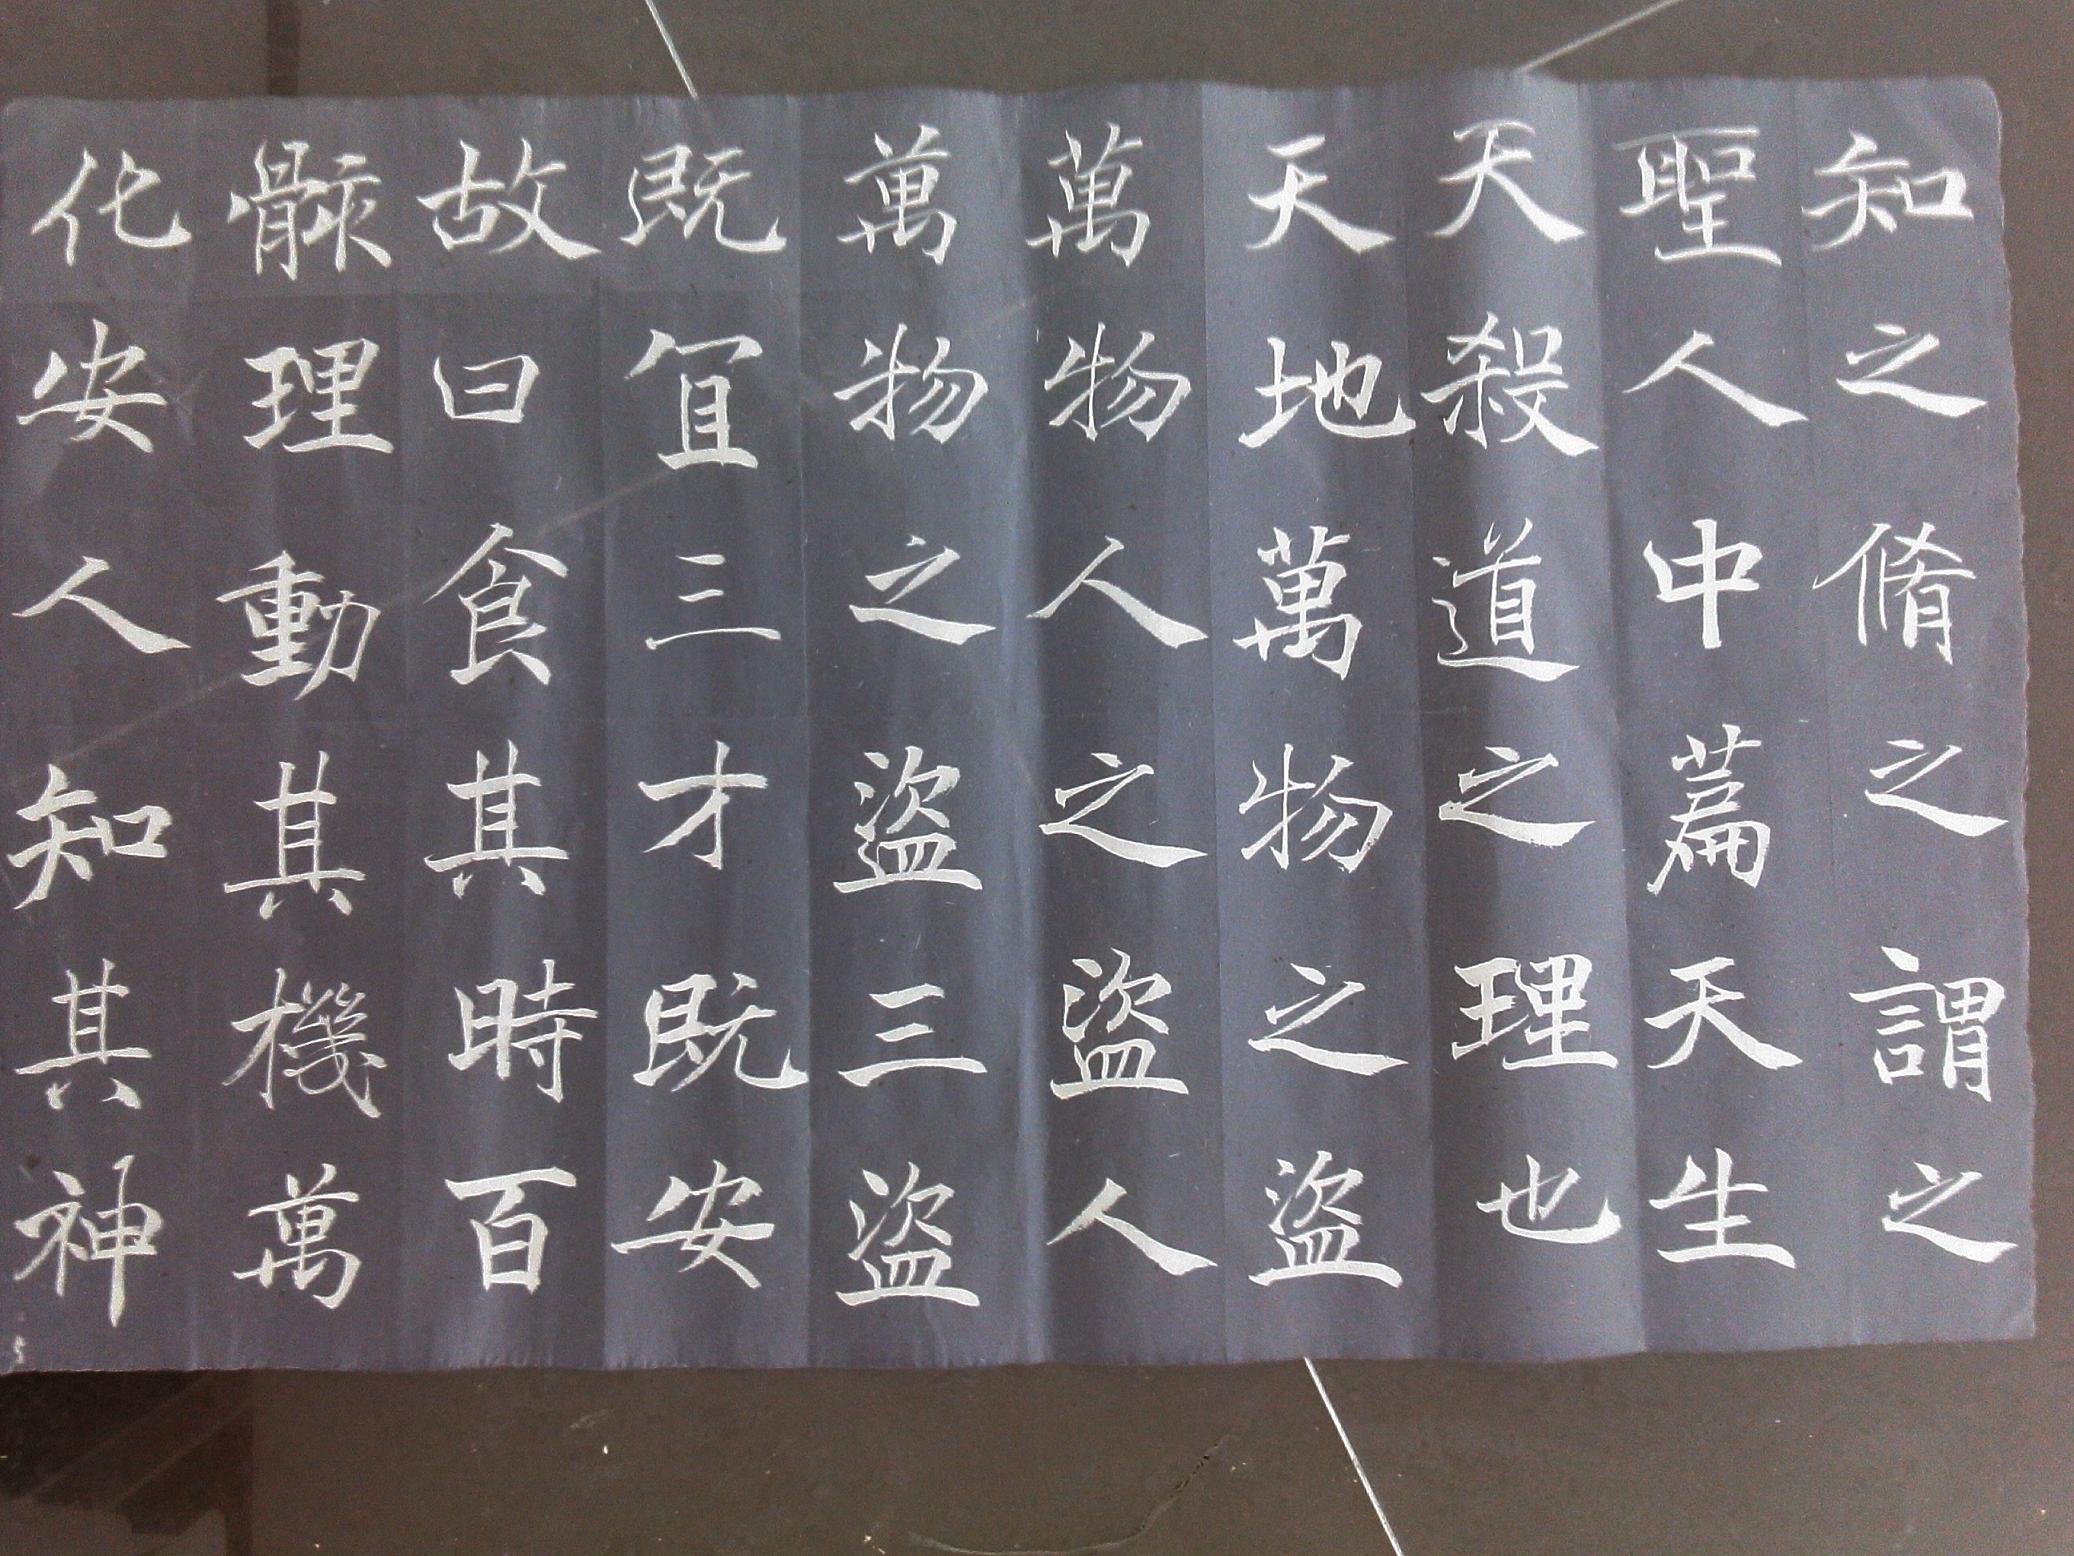 知之脩之謂之
聖人中萹天生
天殺道之理也
天地萬物之盜
萬物人之盜人
萬物之盜三盜
既宜三才既安
故曰食其時百
骸理動其機萬
化安人知其神